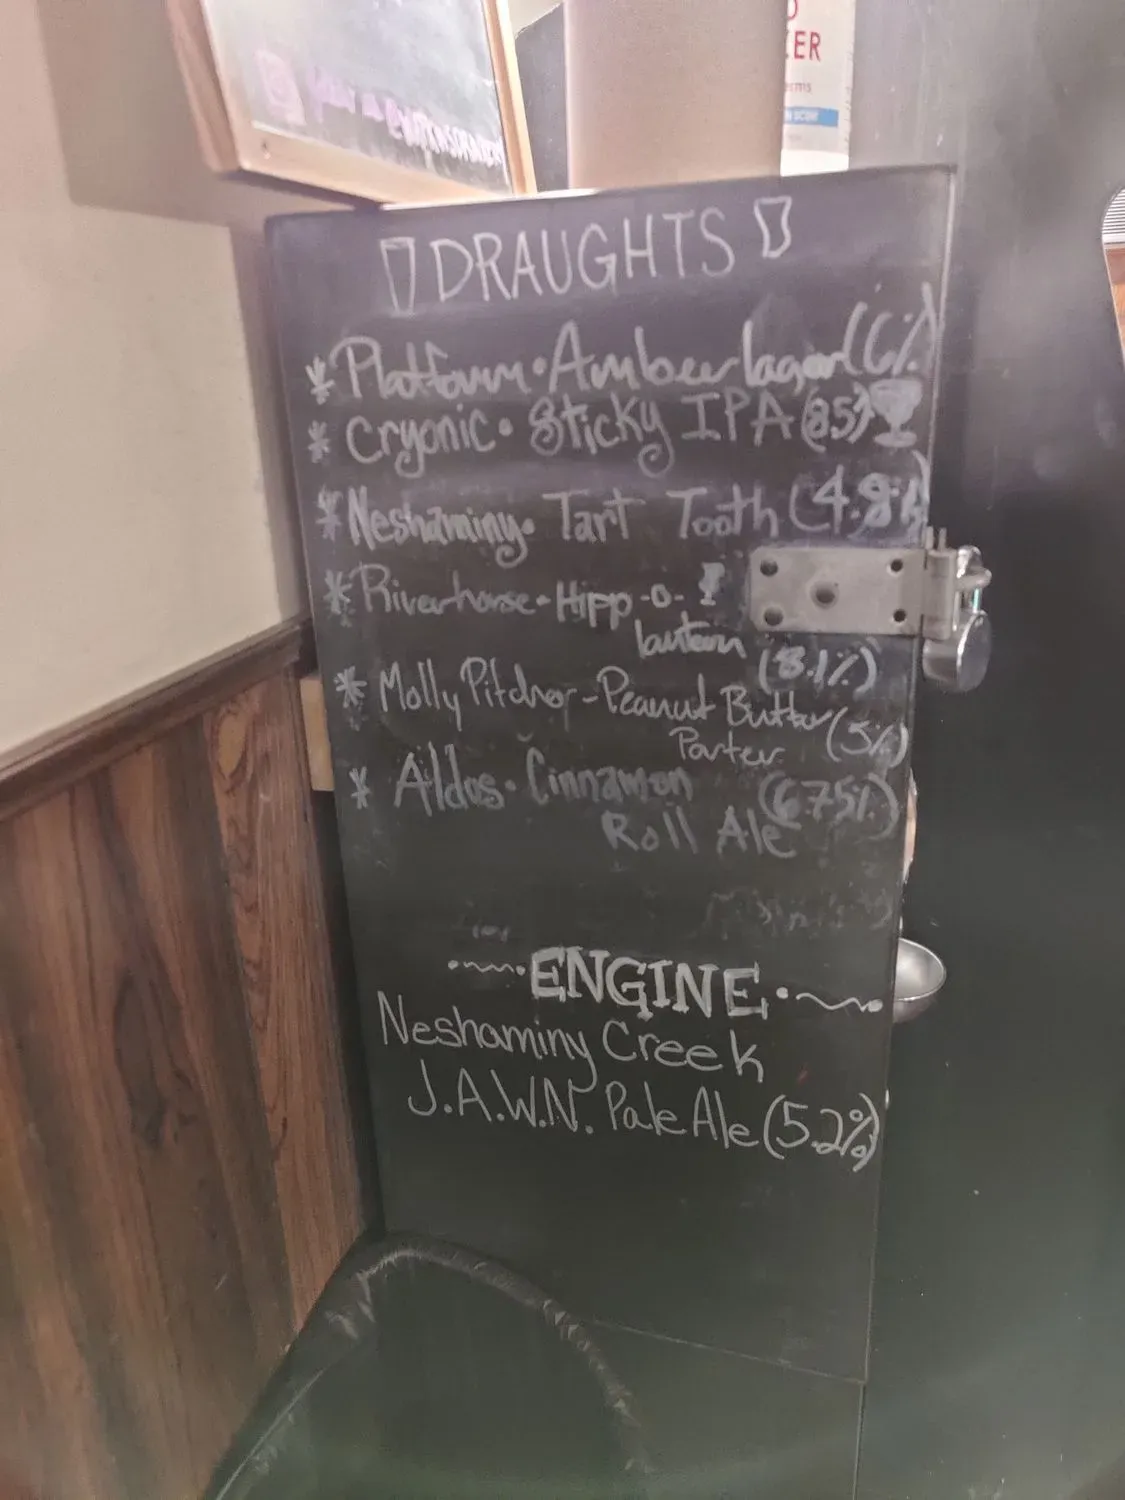 ER
DRAUGHTS
* Platform · Amber lager (6%)
* Cryonic · Sticky IPA (8.5)
* Neshaminy · Tart Tooth (4.8%)
* Riverhorse - Hipp -o-
lantern
(8.1%)
* Molly Pitcher - Peanut Butter
Porter (5%)
* Aldos · Cinnamon (6.75%)
Roll Ale
ENGINE
Neshaminy Creek
J.A.W.N. Pale Ale (5.2%)